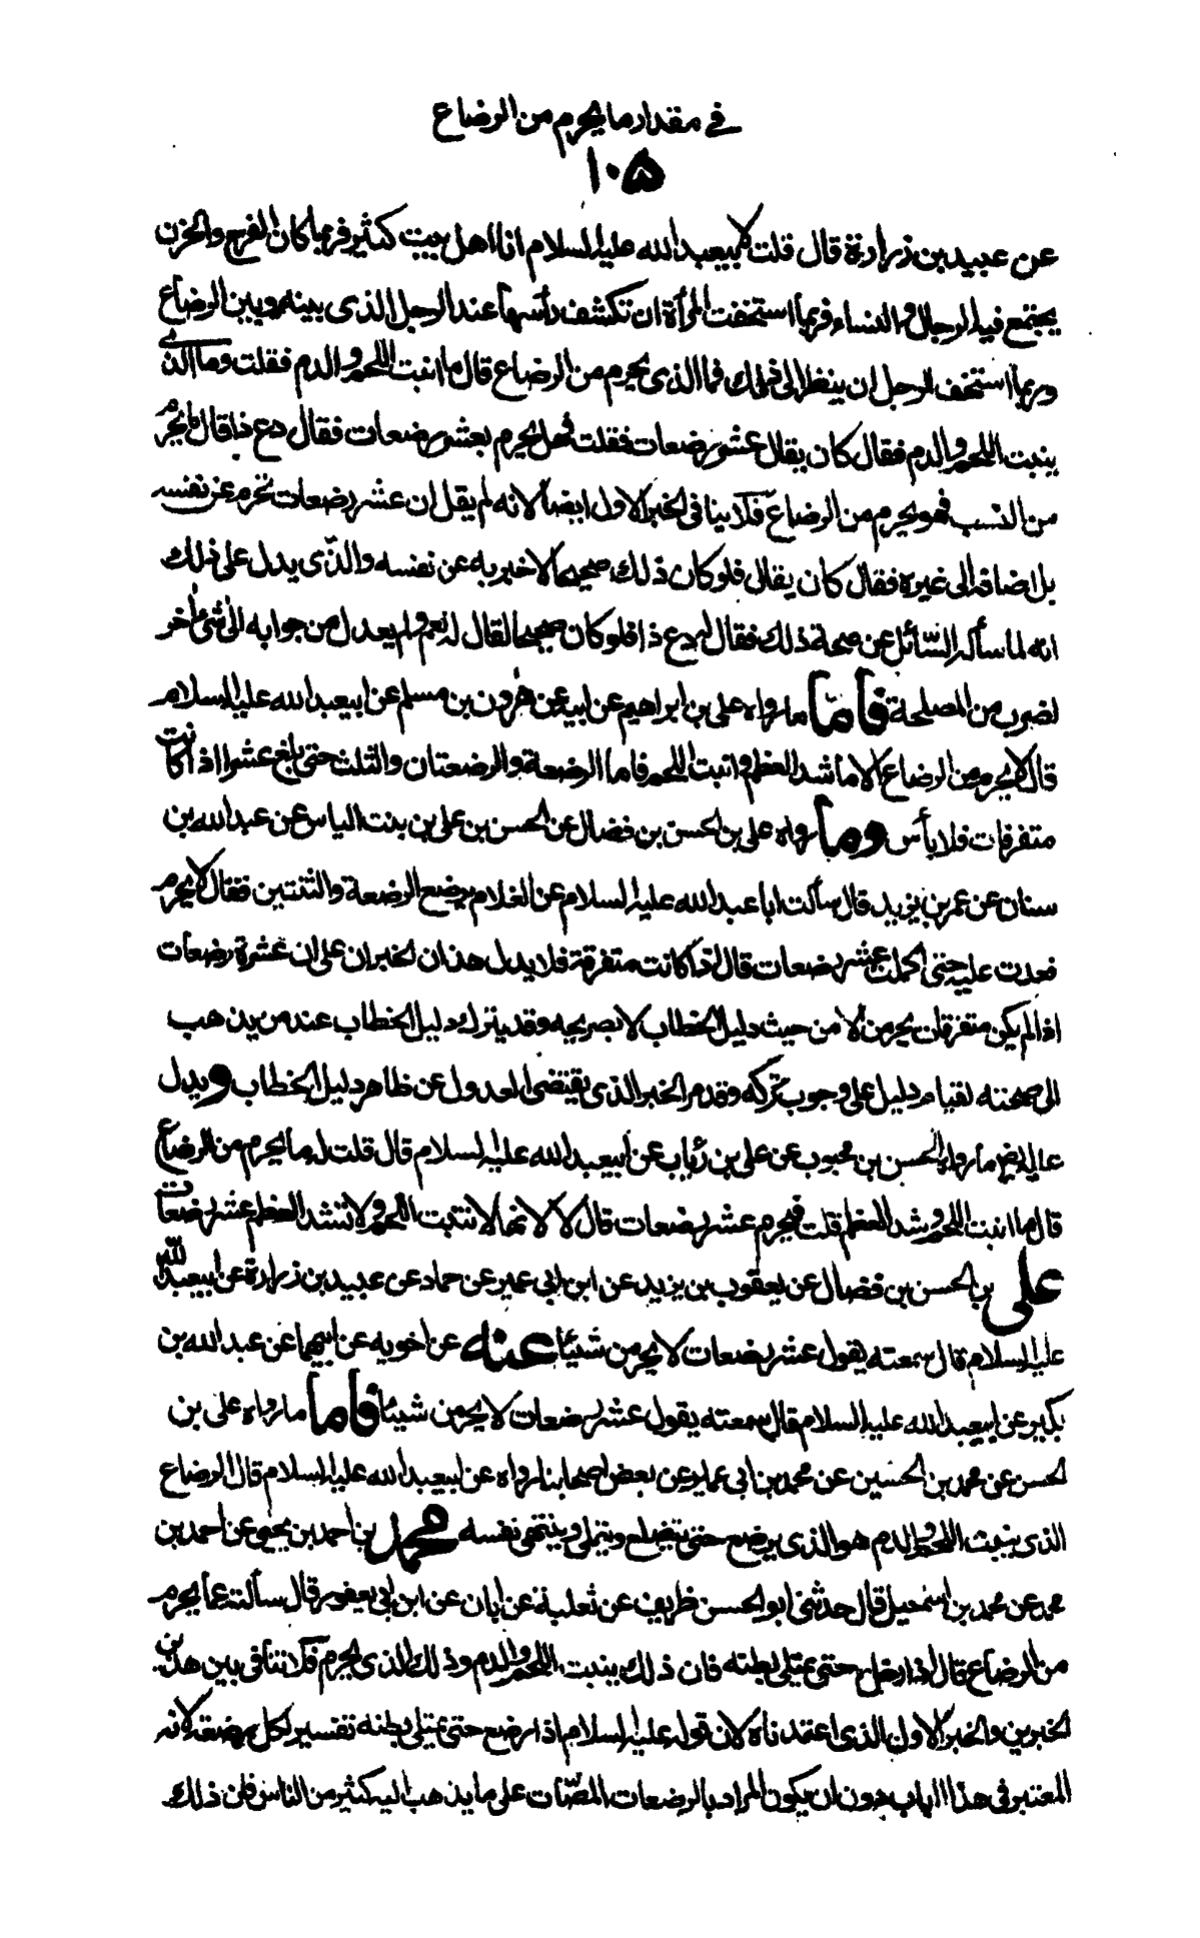 في مقدار ما يحرم من الرضاع
١٠٥
عن عبيد بن زرارة قال قلت لابيعبد الله عليه السلام انا اهل بيت كثير فربما كان الفرح والحزن
يجتمع فيه الرجال والنساء فربما استخفت المرأة ان تكشف رأسها عند الرجل الذى بينه وبين الرضاع
وربما استخف الرجل ان ينظر الى ذلك فما الذى يحرم من الرضاع قال ما انبت اللحم والدم فقلت وما الذى
ينبت اللحم والدم فقال كان يقال عشر رضعات فقلت فهل يحرم بعشر رضعات فقال دع ذا قال ما يحرم
من النسب فهو يحرم من الرضاع فلا ينافى الخبر الاول ايضا لانه لم يقل ان عشر رضعات تحرم عن نفسه
بل اضافه الى غيره فقال كان يقال فلو كان ذلك صحيحا لاخبر به عن نفسه والذّى يدل على ذلك
انه لما سأله السّائل عن صحة ذلك فقال له دع ذا فلو كان صحيحا لقال له نعم ولم يعدل من جوابه الى شئ اخر
لضرب من المصلحة فاما ما رواه على بن ابراهيم عن ابيه عن هرون بن مسلم عن ابيعبد الله عليه السلام
قال لا يحرم من الرضاع الا ما شد العظم وانبت اللحم فاما الرضعة والرضعتان والثلث حتى بلغ عشرا اذا كانت
متفرقات فلا بأس وما رواه على بن الحسن بن فضال عن الحسن بن على بن بنت الياس عن عبد الله بن
سنان عن عمر بن يزيد قال سألت ابا عبد الله عليه السلام عن الغلام يرضع الرضعة والثنتين فقال لا يحرم
فعدت عليه حتى اكملت عشر رضعات قال اذا كانت متفرقة فلا يدل هذان الخبران على ان عشرة رضعات
اذا لم يكن متفرقات يحرمن الا من حيث دليل الخطاب لا بصريحه وقد يترك دليل الخطاب عند من يذهب
الى صحته لقيام دليل على وجوب تركه وقد مر الخبر الذى يقتضى العدول عن ظاهر دليل الخطاب ويدل
عليه ايضا ما رواه الحسن بن محبوب عن على بن رئاب عن ابيعبد الله عليه السلام قال قلت له ما يحرم من الرضاع
قال ما انبت اللحم وشد العظم قلت فيحرم عشر رضعات قال لا لانها لا تنبت اللحم ولا تشد العظم عشر رضعات
على بن الحسن بن فضال عن يعقوب بن يزيد عن ابن ابى عمير عن حماد عن عبيد بن زرارة عن ابيعبد الله
عليه السلام قال سمعته يقول عشر رضعات لا يحرمن شيئا عنه عن اخويه عن ابيهما عن عبد الله بن
بكير عن ابيعبد الله عليه السلام قال سمعته يقول عشر رضعات لا يحرمن شيئا فاما ما رواه على بن
الحسن عن محمد بن الحسين عن محمد بن ابى عمير عن بعض اصحابنا رواه عن ابيعبد الله عليه السلام قال الرضاع
الذى ينبت اللحم والدم هو الذى يرضع حتى يتضلع ويتملى وينتهى نفسه محمد بن احمد بن يحيى عن احمد بن
محمد عن محمد بن اسمعيل قال حدثنى ابو الحسن ظريف عن ثعلبة عن ابان عن ابن ابى يعفور قال سألته عما يحرم
من الرضاع قال اذا رضع حتى يمتلى بطنه فان ذلك ينبت اللحم والدم وذلك الذى يحرم فلا تنافى بين هذين
الخبرين والخبر الاول الذى اعتمدناه لان قوله عليه السلام اذا رضع حتى يمتلى بطنه تفسير لكل رضعة لانه
المعتبر فى هذا الباب دون ان يكون المراد بالرضعات المصّات على ما يذهب اليه كثير من الناس فان ذلك